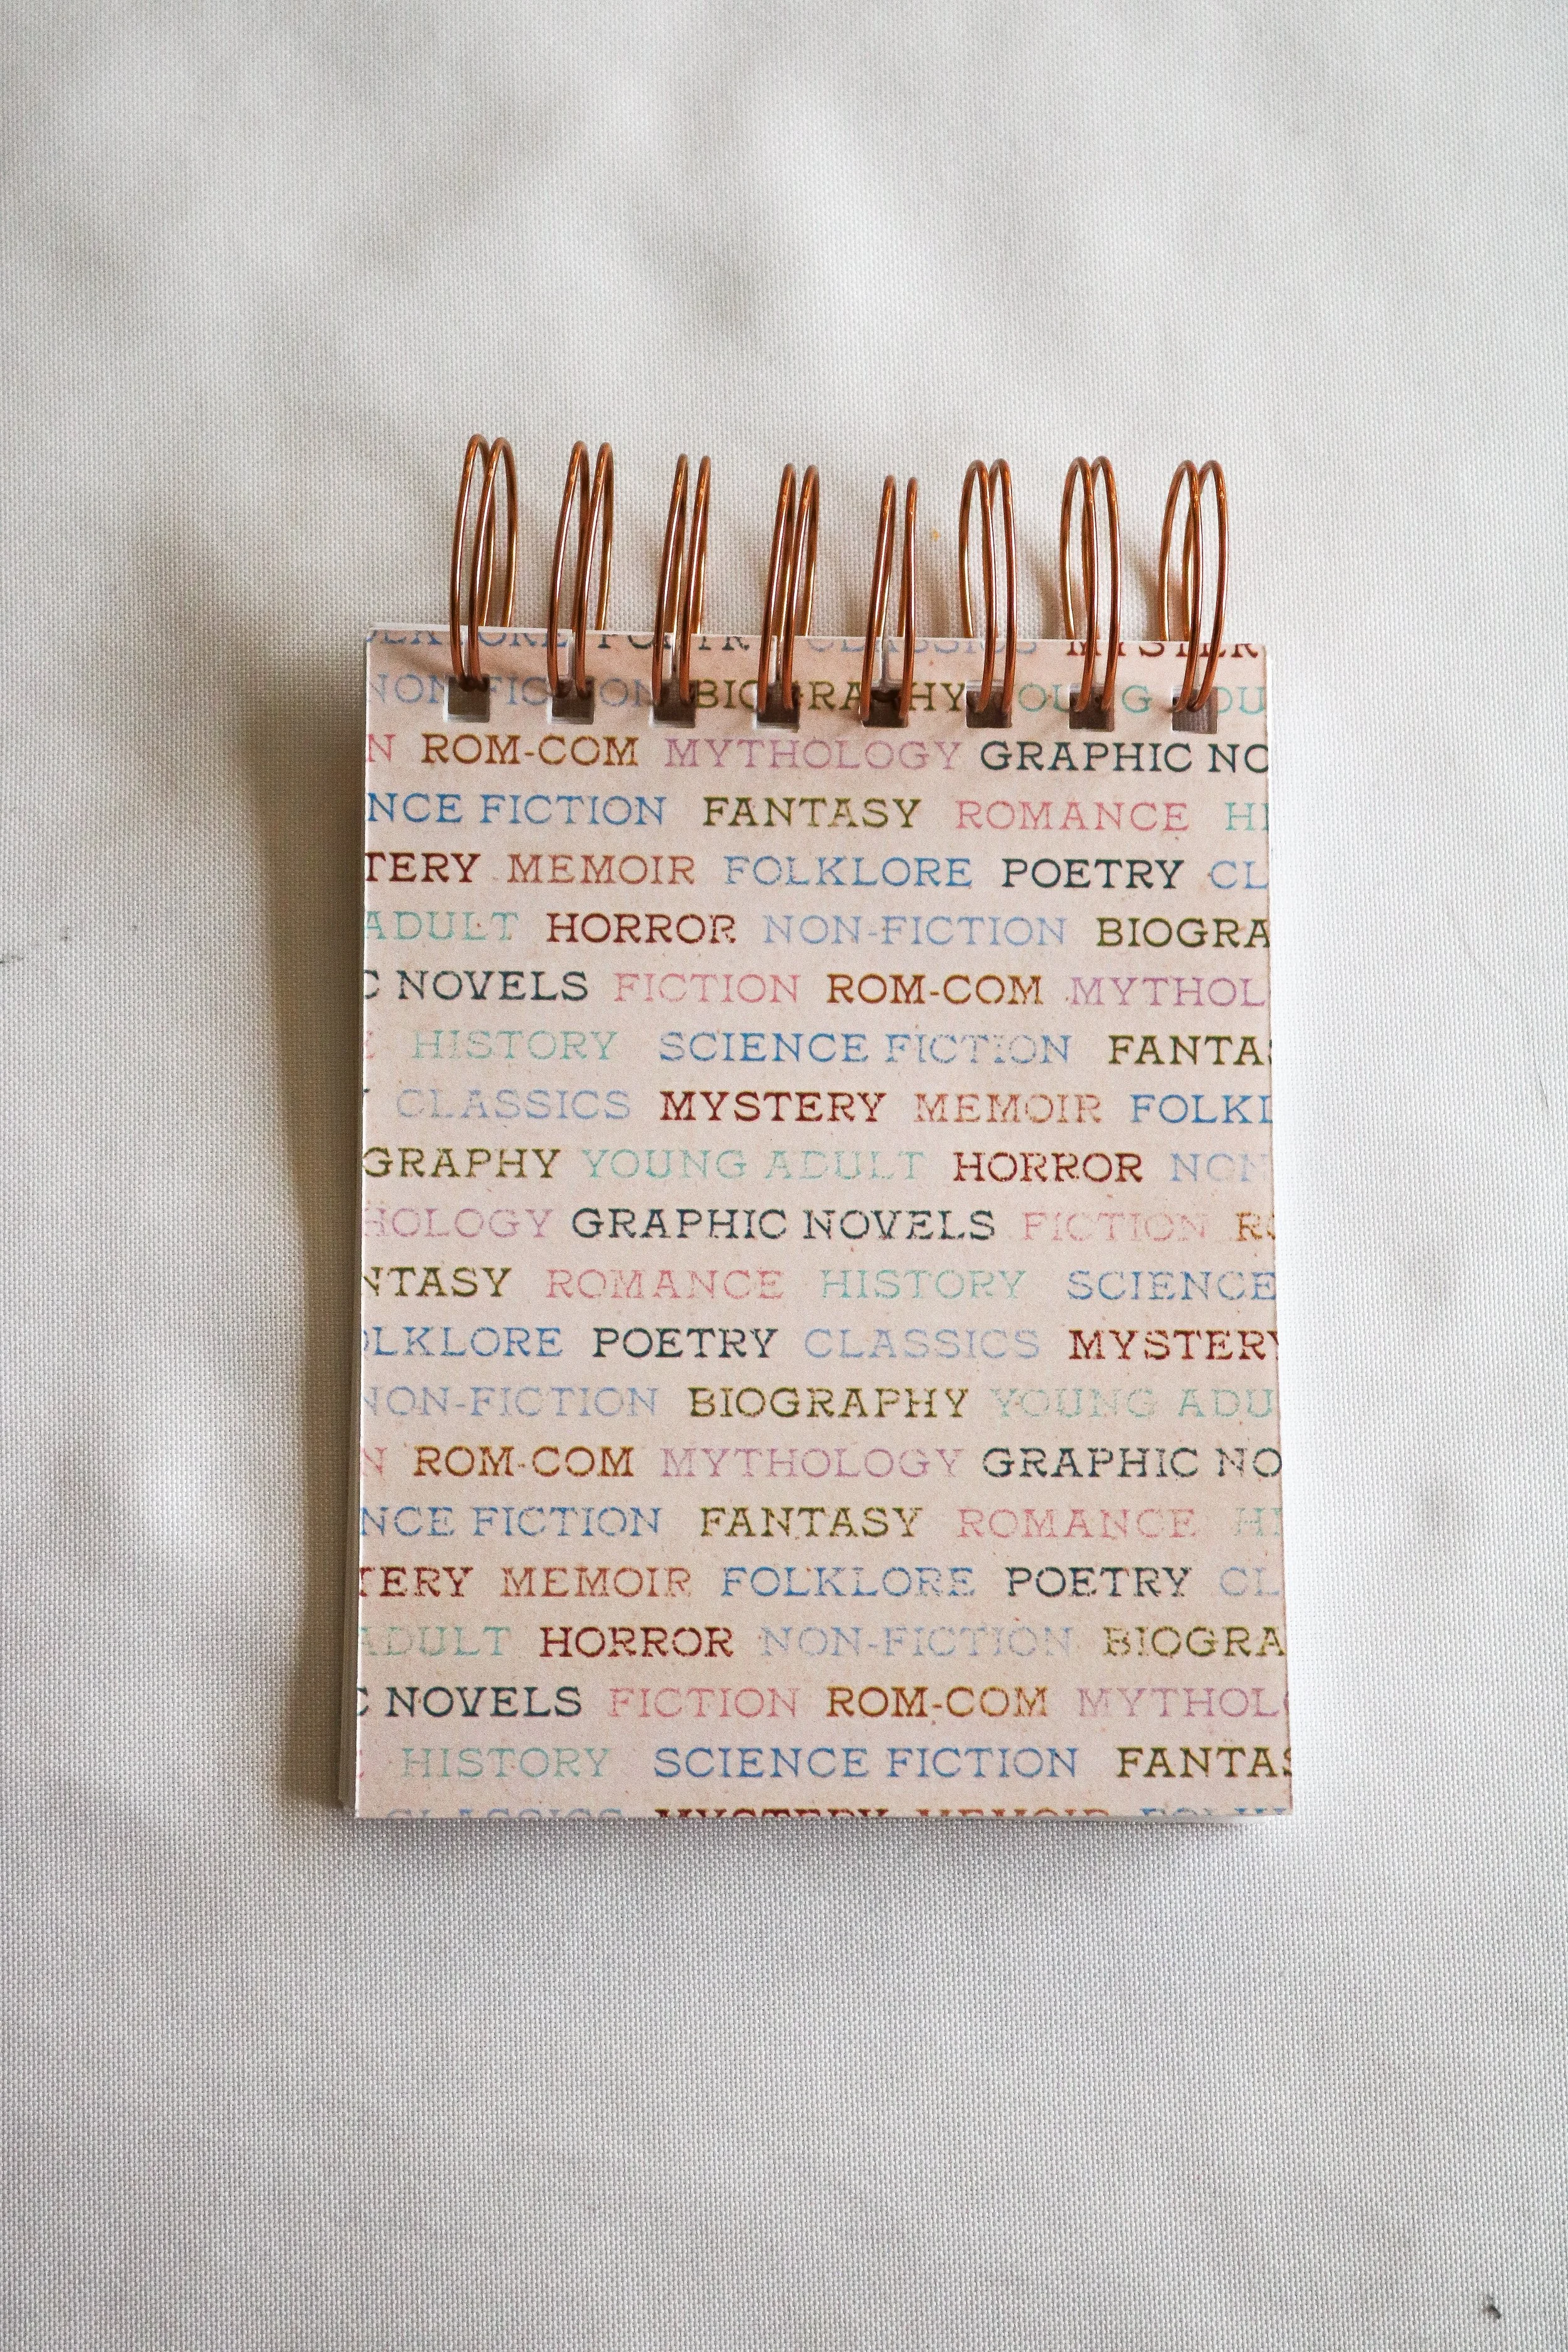 POETRY CLASSICS MYSTER
NON-FICTION BIOGRAPHY YOUNG
N ROM-COM MYTHOLOGY GRAPHIC NO
NCE FICTION FANTASY ROMANCE HI
TERY MEMOIR FOLKLORE POETRY CL
ADULT HORROR NON-FICTION BIOGRA
C NOVELS FICTION ROM-COM MYTHOL
HISTORY SCIENCE FICTION FANTA
CLASSICS MYSTERY MEMOIR FOLKL
GRAPHY YOUNG ADULT HORROR NON
HOLOGY GRAPHIC NOVELS FICTION RO
NTASY ROMANCE HISTORY SCIENCE
OLKLORE POETRY CLASSICS MYSTERY
NON-FICTION BIOGRAPHY YOUNG ADU
N ROM-COM MYTHOLOGY GRAPHIC NO
NCE FICTION FANTASY ROMANCE HI
TERY MEMOIR FOLKLORE POETRY CL
ADULT HORROR NON-FICTION BIOGRA
C NOVELS FICTION ROM-COM MYTHOL
HISTORY SCIENCE FICTION FANTAS
CLASSICS MYSTERY MEMOIR